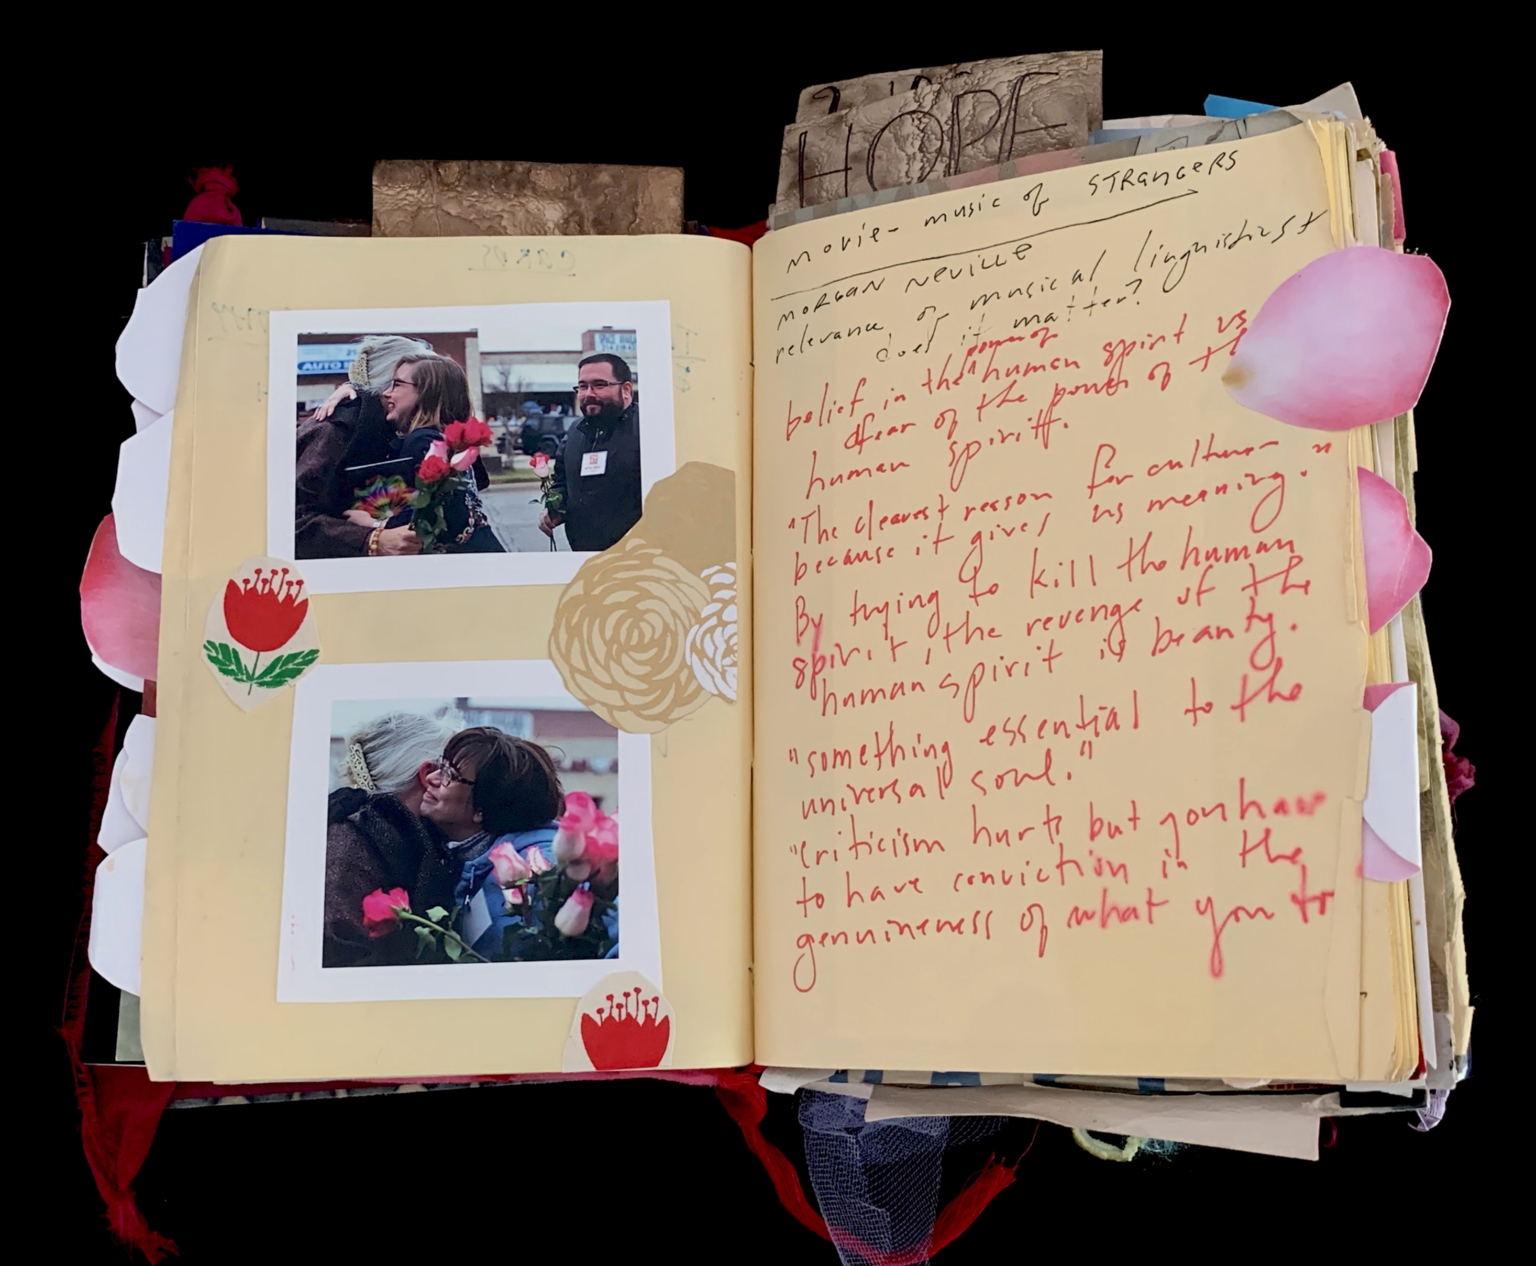 HOPE
AUTO
CARDS
movie - music of STRangeRS
MORGAN NEVILLE
relevance of musical linguistist
does it matter?
power of
belief in the human spirit vs
fear of the power of th
human spiritt.
"The cleavest reason for culture
because it gives us meaning."
By trying to kill the human
spirit, the revenge of the
human spirit is beauty.
"something essential to the
universal soul."
"criticism hurts but you have
to have conviction in the
genuineness of what you to